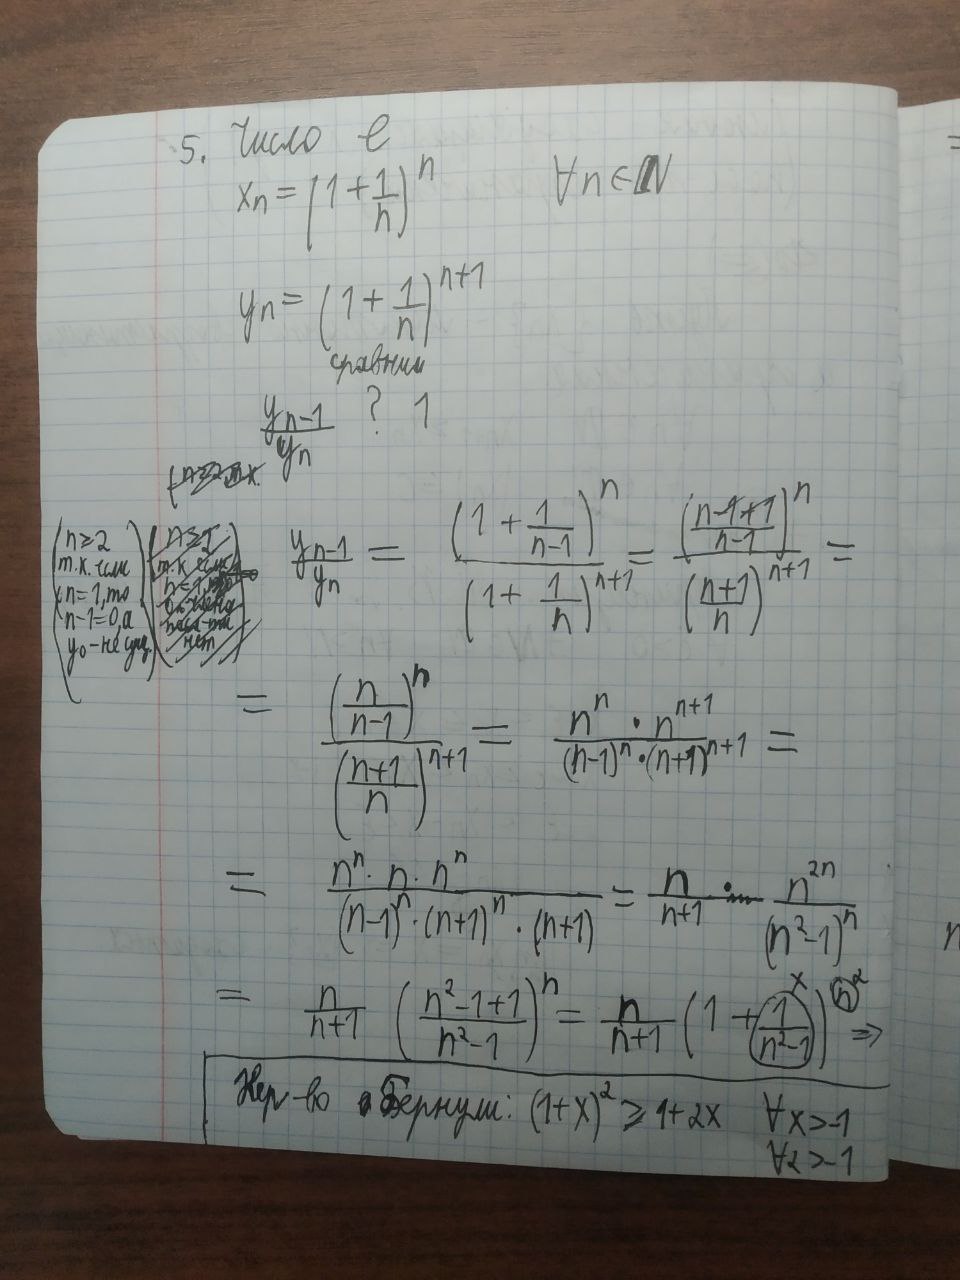 5. Число e
xₙ = (1 + 1/n)ⁿ ∀n ∈ N
yₙ = (1 + 1/n)ⁿ⁺¹
сравним
yₙ₋₁/yₙ ? 1
(n ≥ 2
т.к. если
n = 1, то
n-1 = 0, а
y₀ - не сущ)
yₙ₋₁/yₙ = (1 + 1/(n-1))ⁿ / (1 + 1/n)ⁿ⁺¹ = ((n-1+1)/(n-1))ⁿ / ((n+1)/n)ⁿ⁺¹ =
= (n/(n-1))ⁿ / ((n+1)/n)ⁿ⁺¹ = nⁿ · nⁿ⁺¹ / (n-1)ⁿ · (n+1)ⁿ⁺¹ =
= nⁿ · n · nⁿ / (n-1)ⁿ · (n+1)ⁿ · (n+1) = n/(n+1) · n²ⁿ/(n²-1)ⁿ
= n/(n+1) ((n²-1+1)/(n²-1))ⁿ = n/(n+1) (1 + 1/(n²-1))ⁿ ⇒
x
2
Нер-во Бернули: (1+x)² ≥ 1+2x ∀x > -1
∀2 > -1